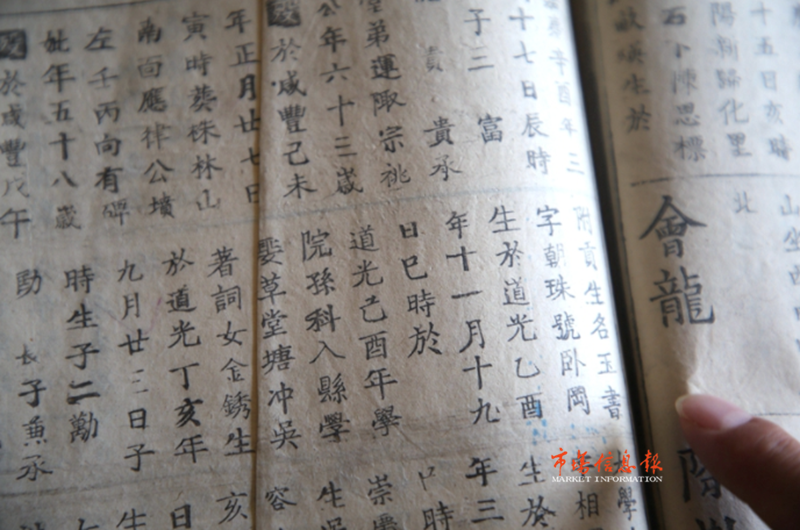 十五日亥時
陽新路化里
石卜陳思標
生於
北
會龍
際
辛酉年三
十七日辰時
子三 富
貴 貴承
堂弟運陬宗祧
公年六十三歲
歿於咸豐己未
年正月廿七日
寅時葬株林山
南面應律公墳
左壬丙向有碑
妣年五十八歲
歿於咸豐戊午
附貢生名玉書
字朝珠號卧岡
生於道光乙酉
年十一月十九
日巳時於
道光己酉年學
院孫科入縣學
娶草堂塘冲吳
著詞女金銹生
於道光丁亥年
九月廿三日子
時生子二勸
助 長子兼承
學
相
生於
年三
時
崇
生吳
容
亥
日
生
市場信息報
MARKET INFORMATION